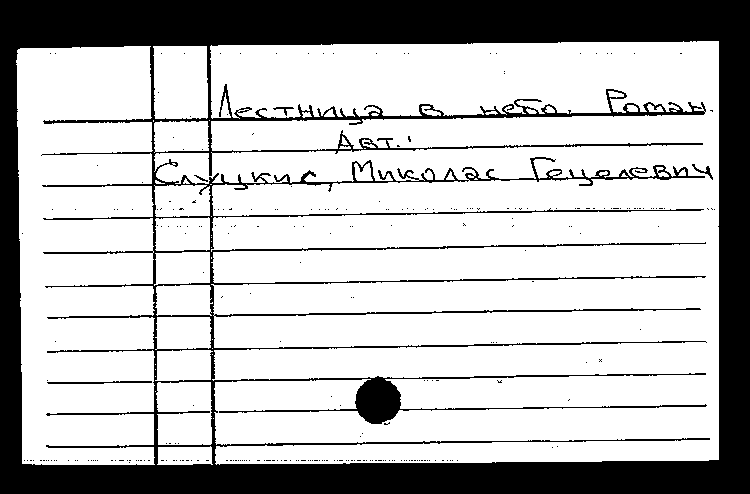 Лестница в небо. Роман.
Авт.:
Слуцкис, Миколас Гецелевич